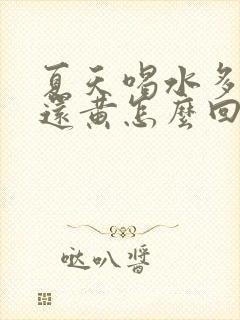 夏天喝水多
還黃怎麼回
哒叭醬